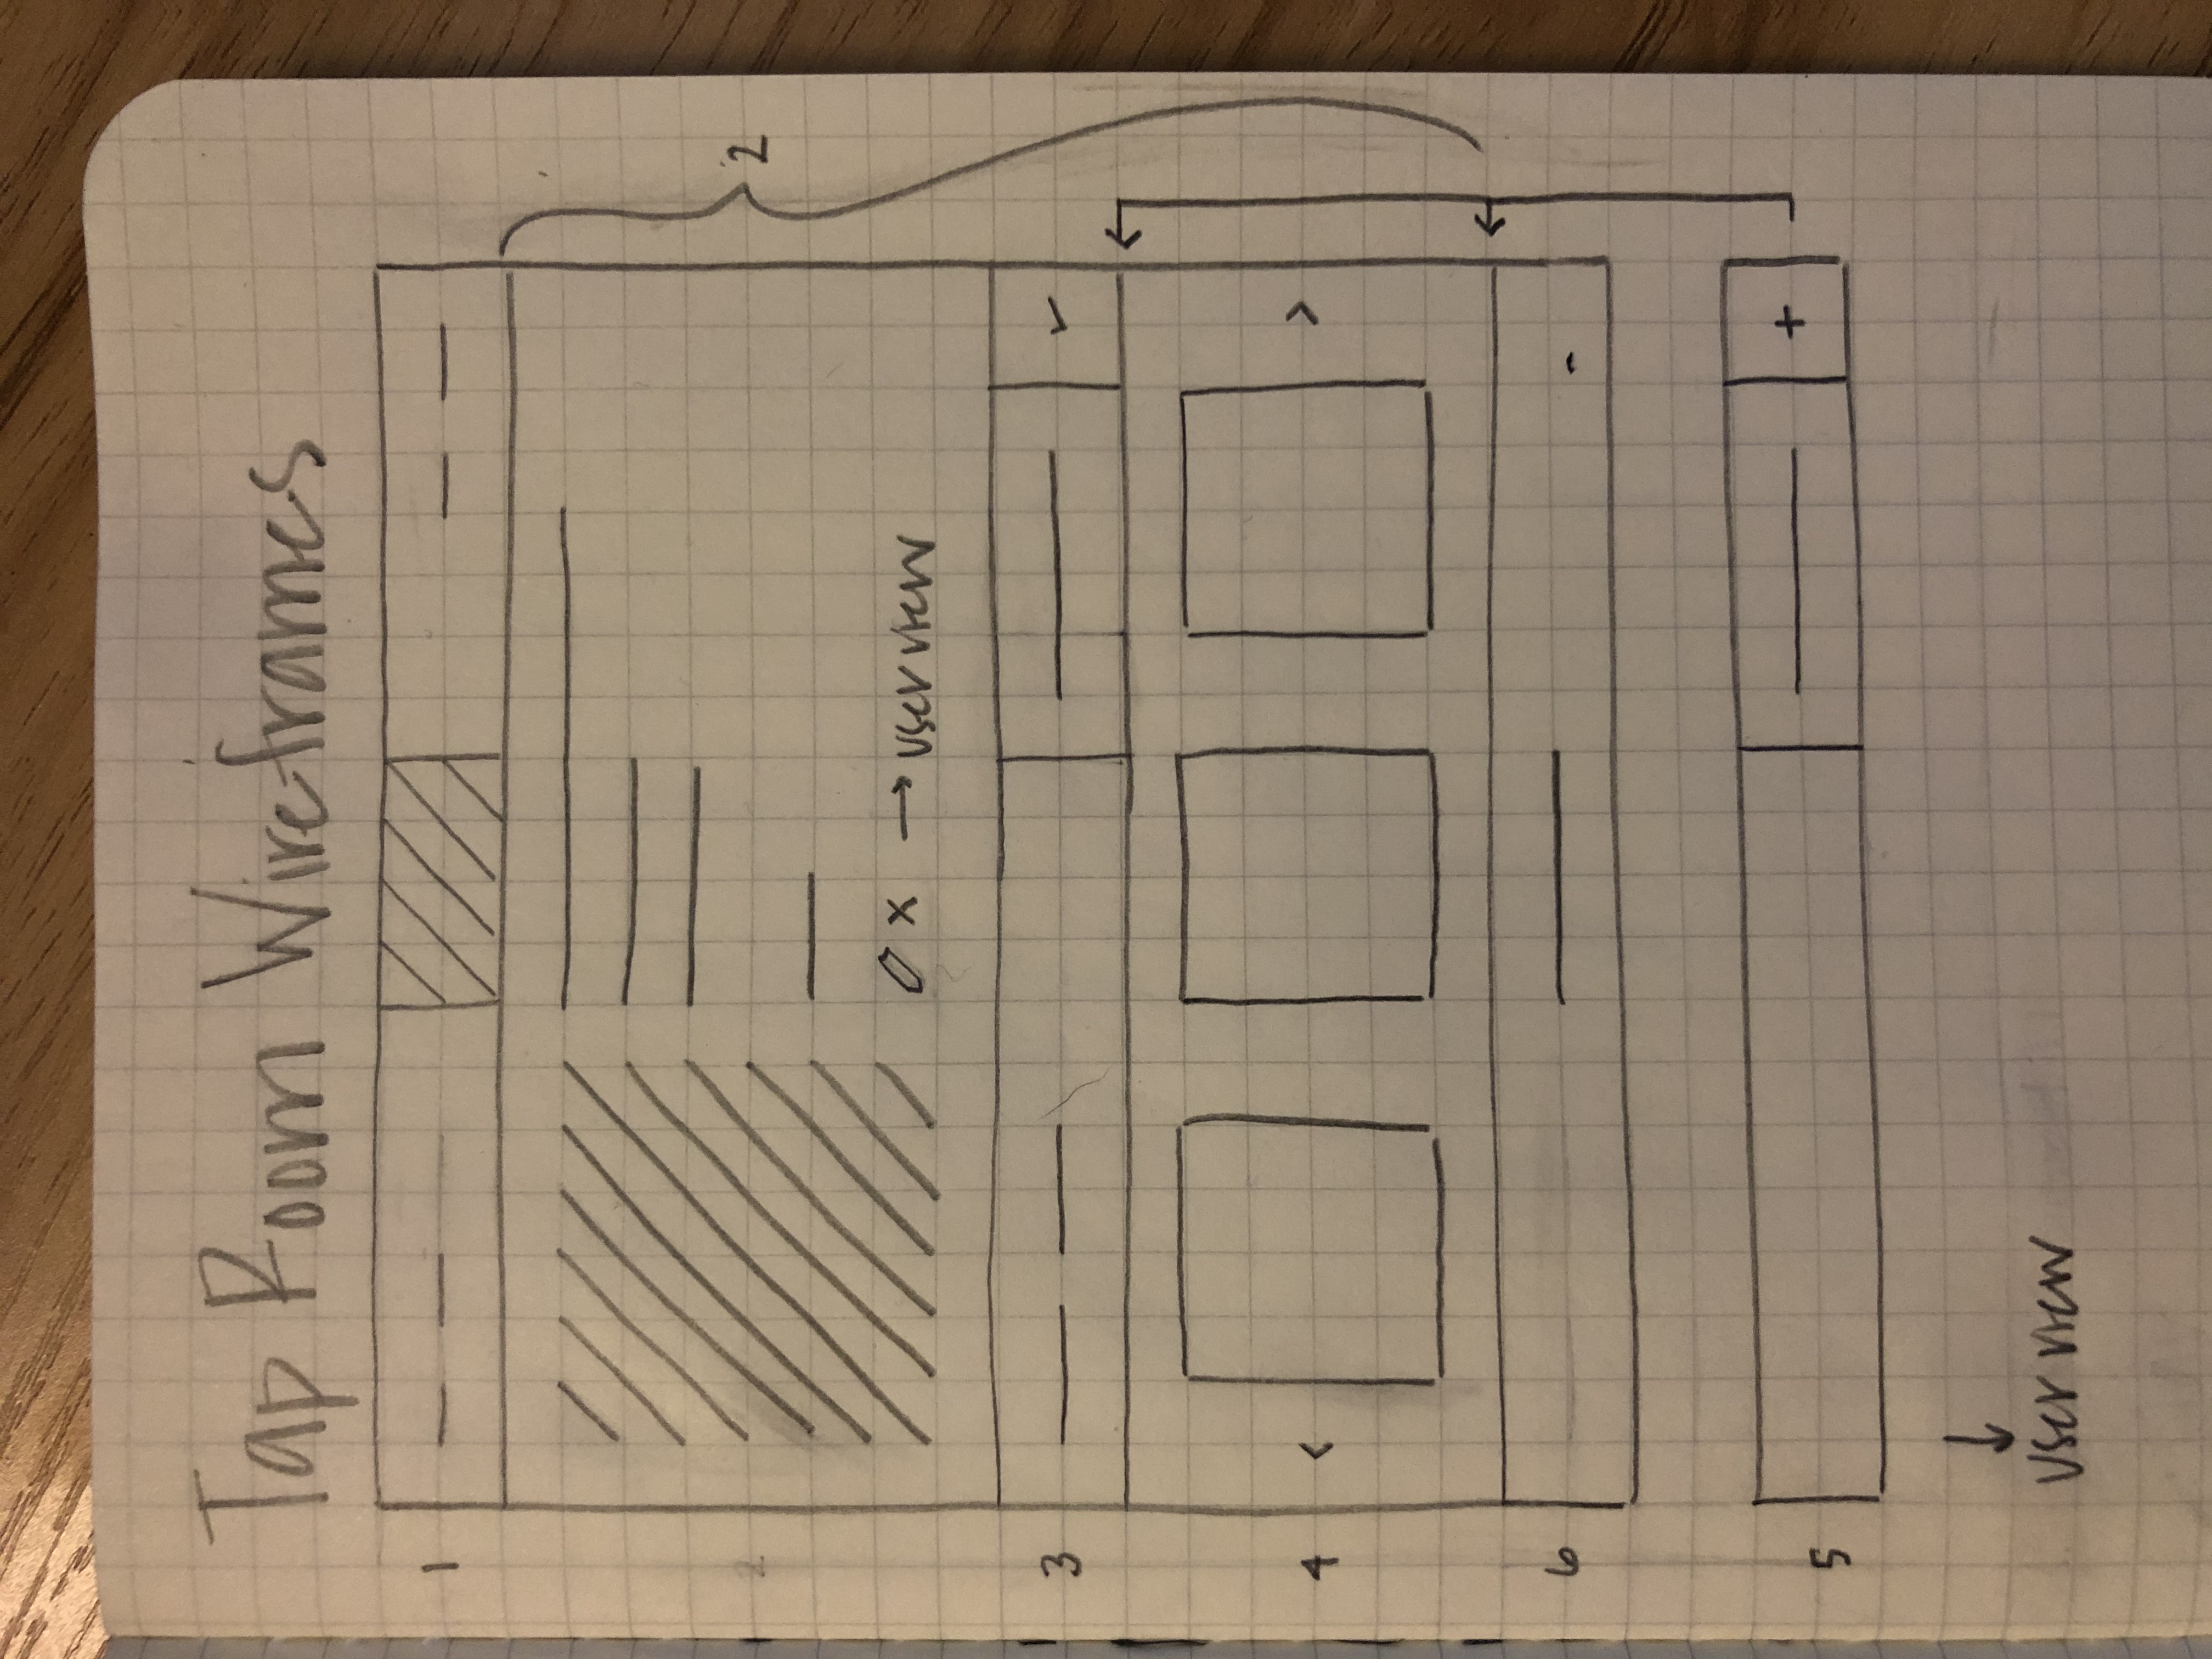 Tap Room Wireframes
1
2
2
x → user view
3
4
< >
6
-
5
+
↓
user view